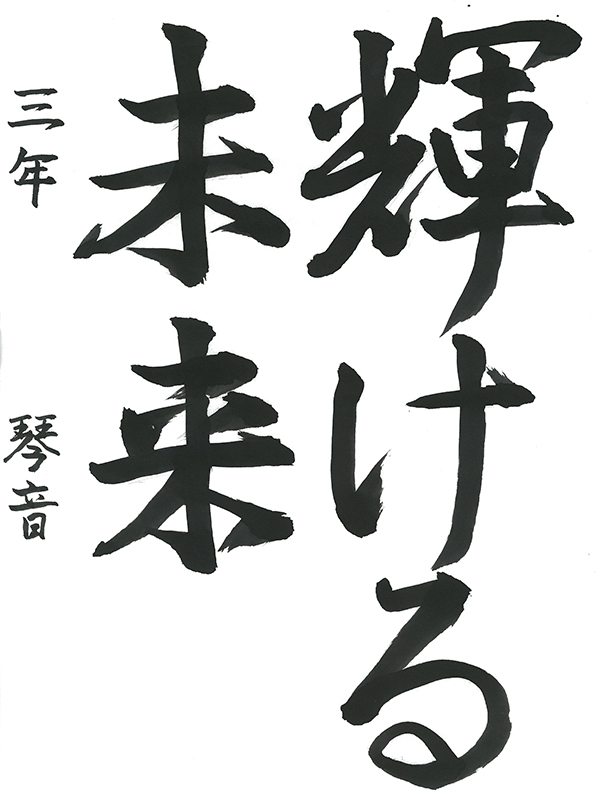 輝ける
未来
三年 琴音